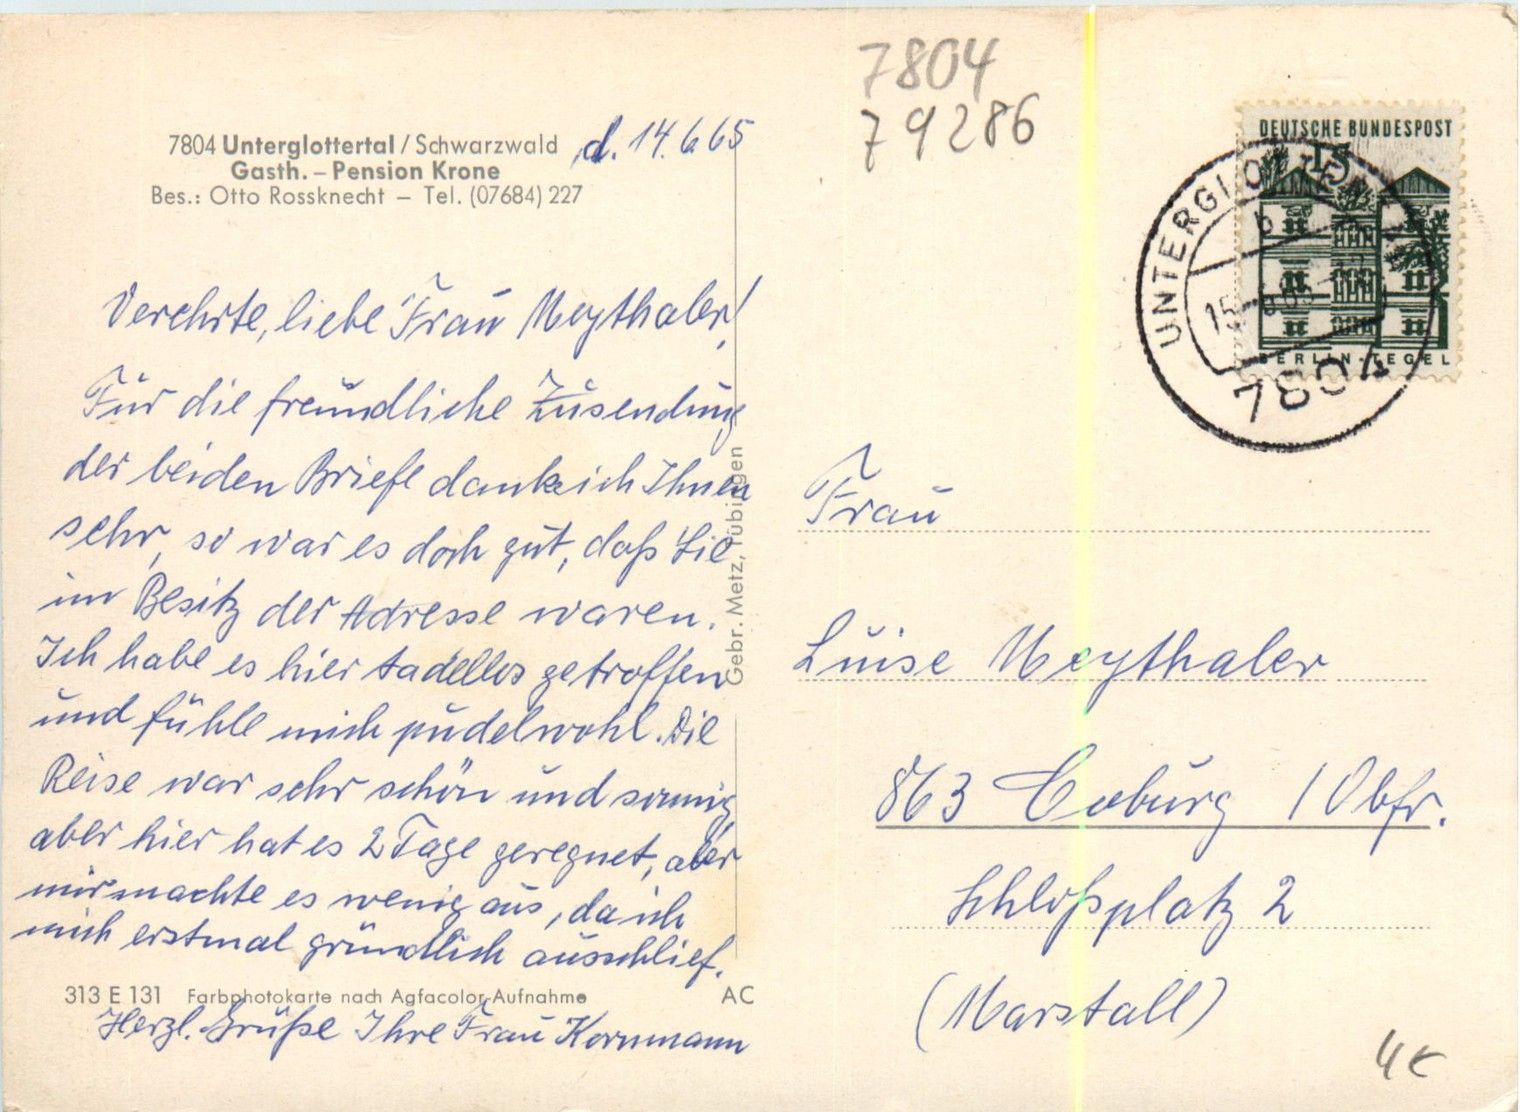 7804 Unterglottertal / Schwarzwald, d. 14.6.65
Gasth. – Pension Krone
Bes.: Otto Rossknecht – Tel. (07684) 227
Verehrte, liebe Frau Meythaler!
Für die freundliche Zusendung
der beiden Briefe danke ich Ihnen
sehr, so war es doch gut, daß Sie
im Besitz der Adresse waren.
Ich habe es hier tadellos getroffen
und fühle mich pudelwohl. Die
Reise war sehr schön und sonnig,
aber hier hat es 2 Tage geregnet, aber
mir machte es wenig aus, da ich
mich erstmal gründlich ausschlief.
313 E 131 Farbphotokarte nach Agfacolor-Aufnahme AC
Herzl. Grüße Ihre Frau Kornmann
Gebr. Metz, Tübingen
7804
79286
DEUTSCHE BUNDESPOST
15
BERLIN-TEGEL
UNTERGLOTTERTAL
b
7804
Frau
Luise Meythaler
863 Coburg / Obfr.
Schloßplatz 2
(Marstall)
4€